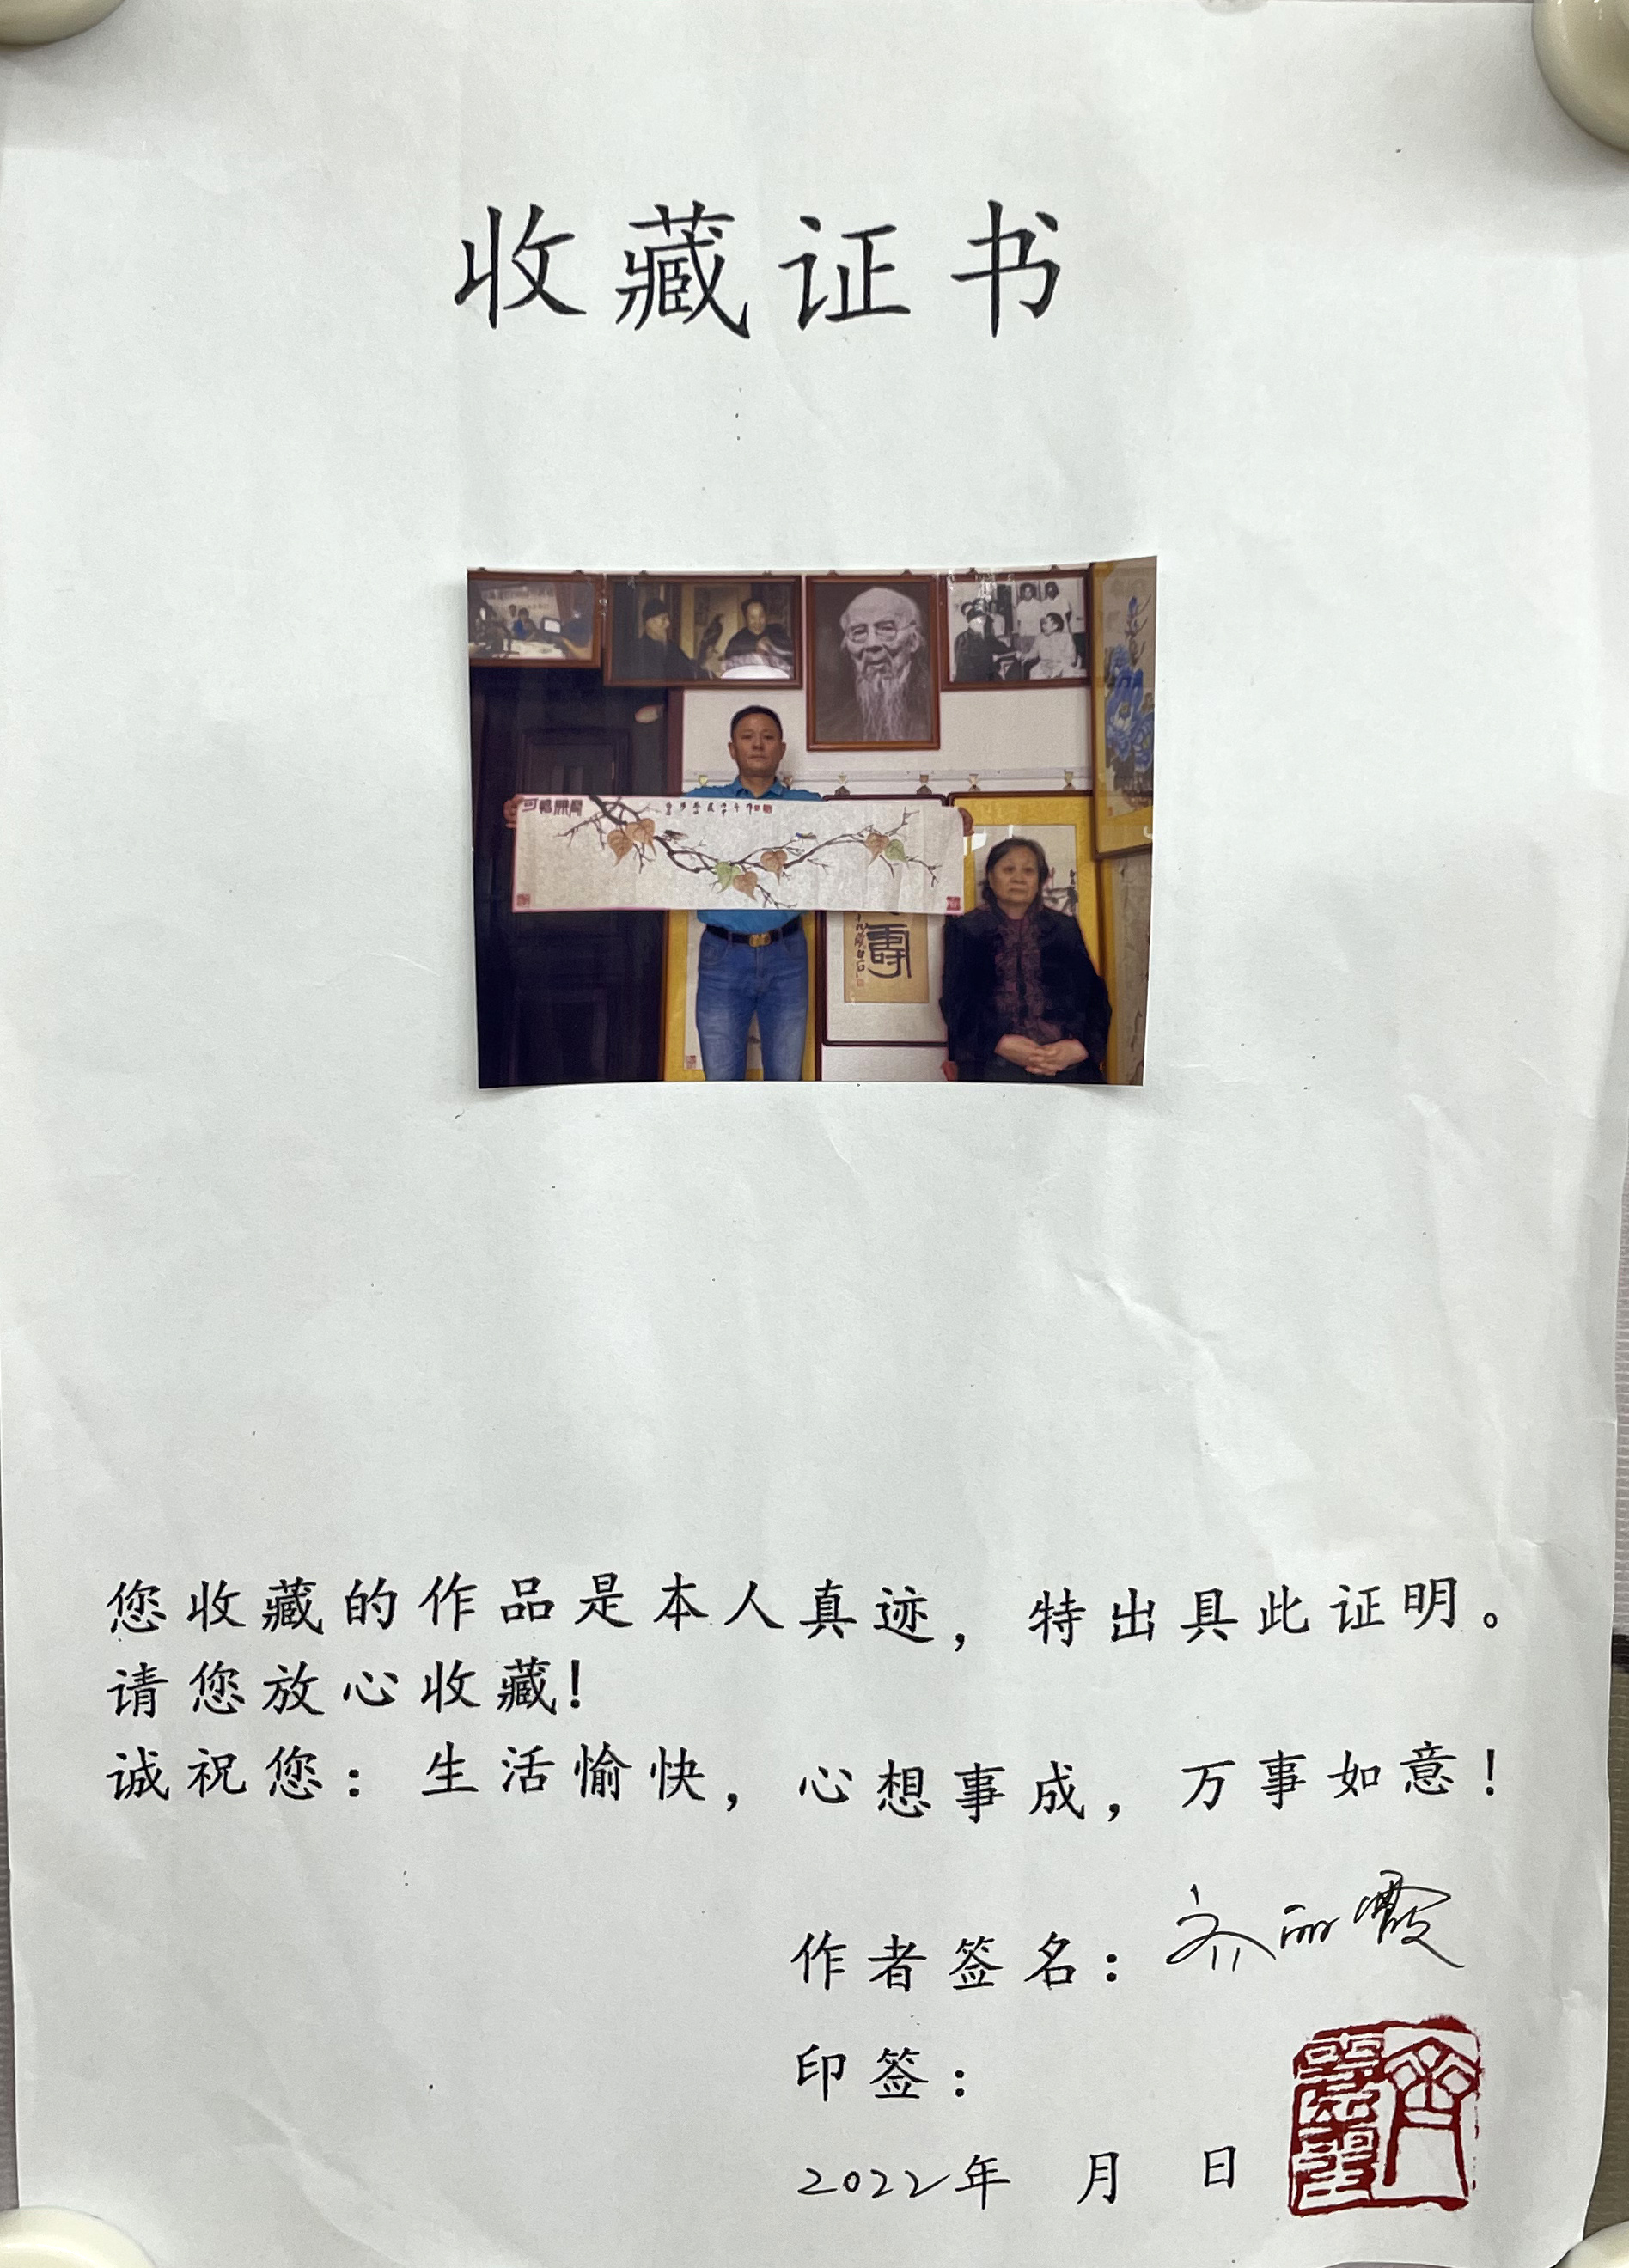 收藏证书
寿
您收藏的作品是本人真迹，特出具此证明。
请您放心收藏！
诚祝您：生活愉快，心想事成，万事如意！
作者签名：齐丽霞
印签：
2022年 月 日